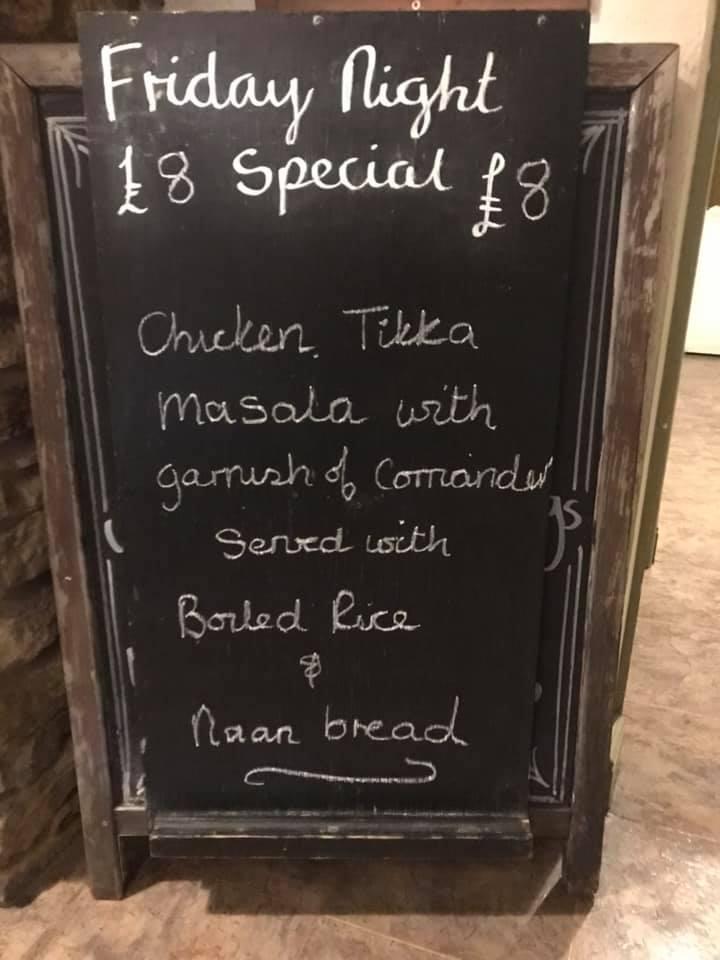 Friday Night
£8 Special £8
Chicken Tikka
Masala with
garnish of Corriander
Served with
Boiled Rice
&
Naan bread